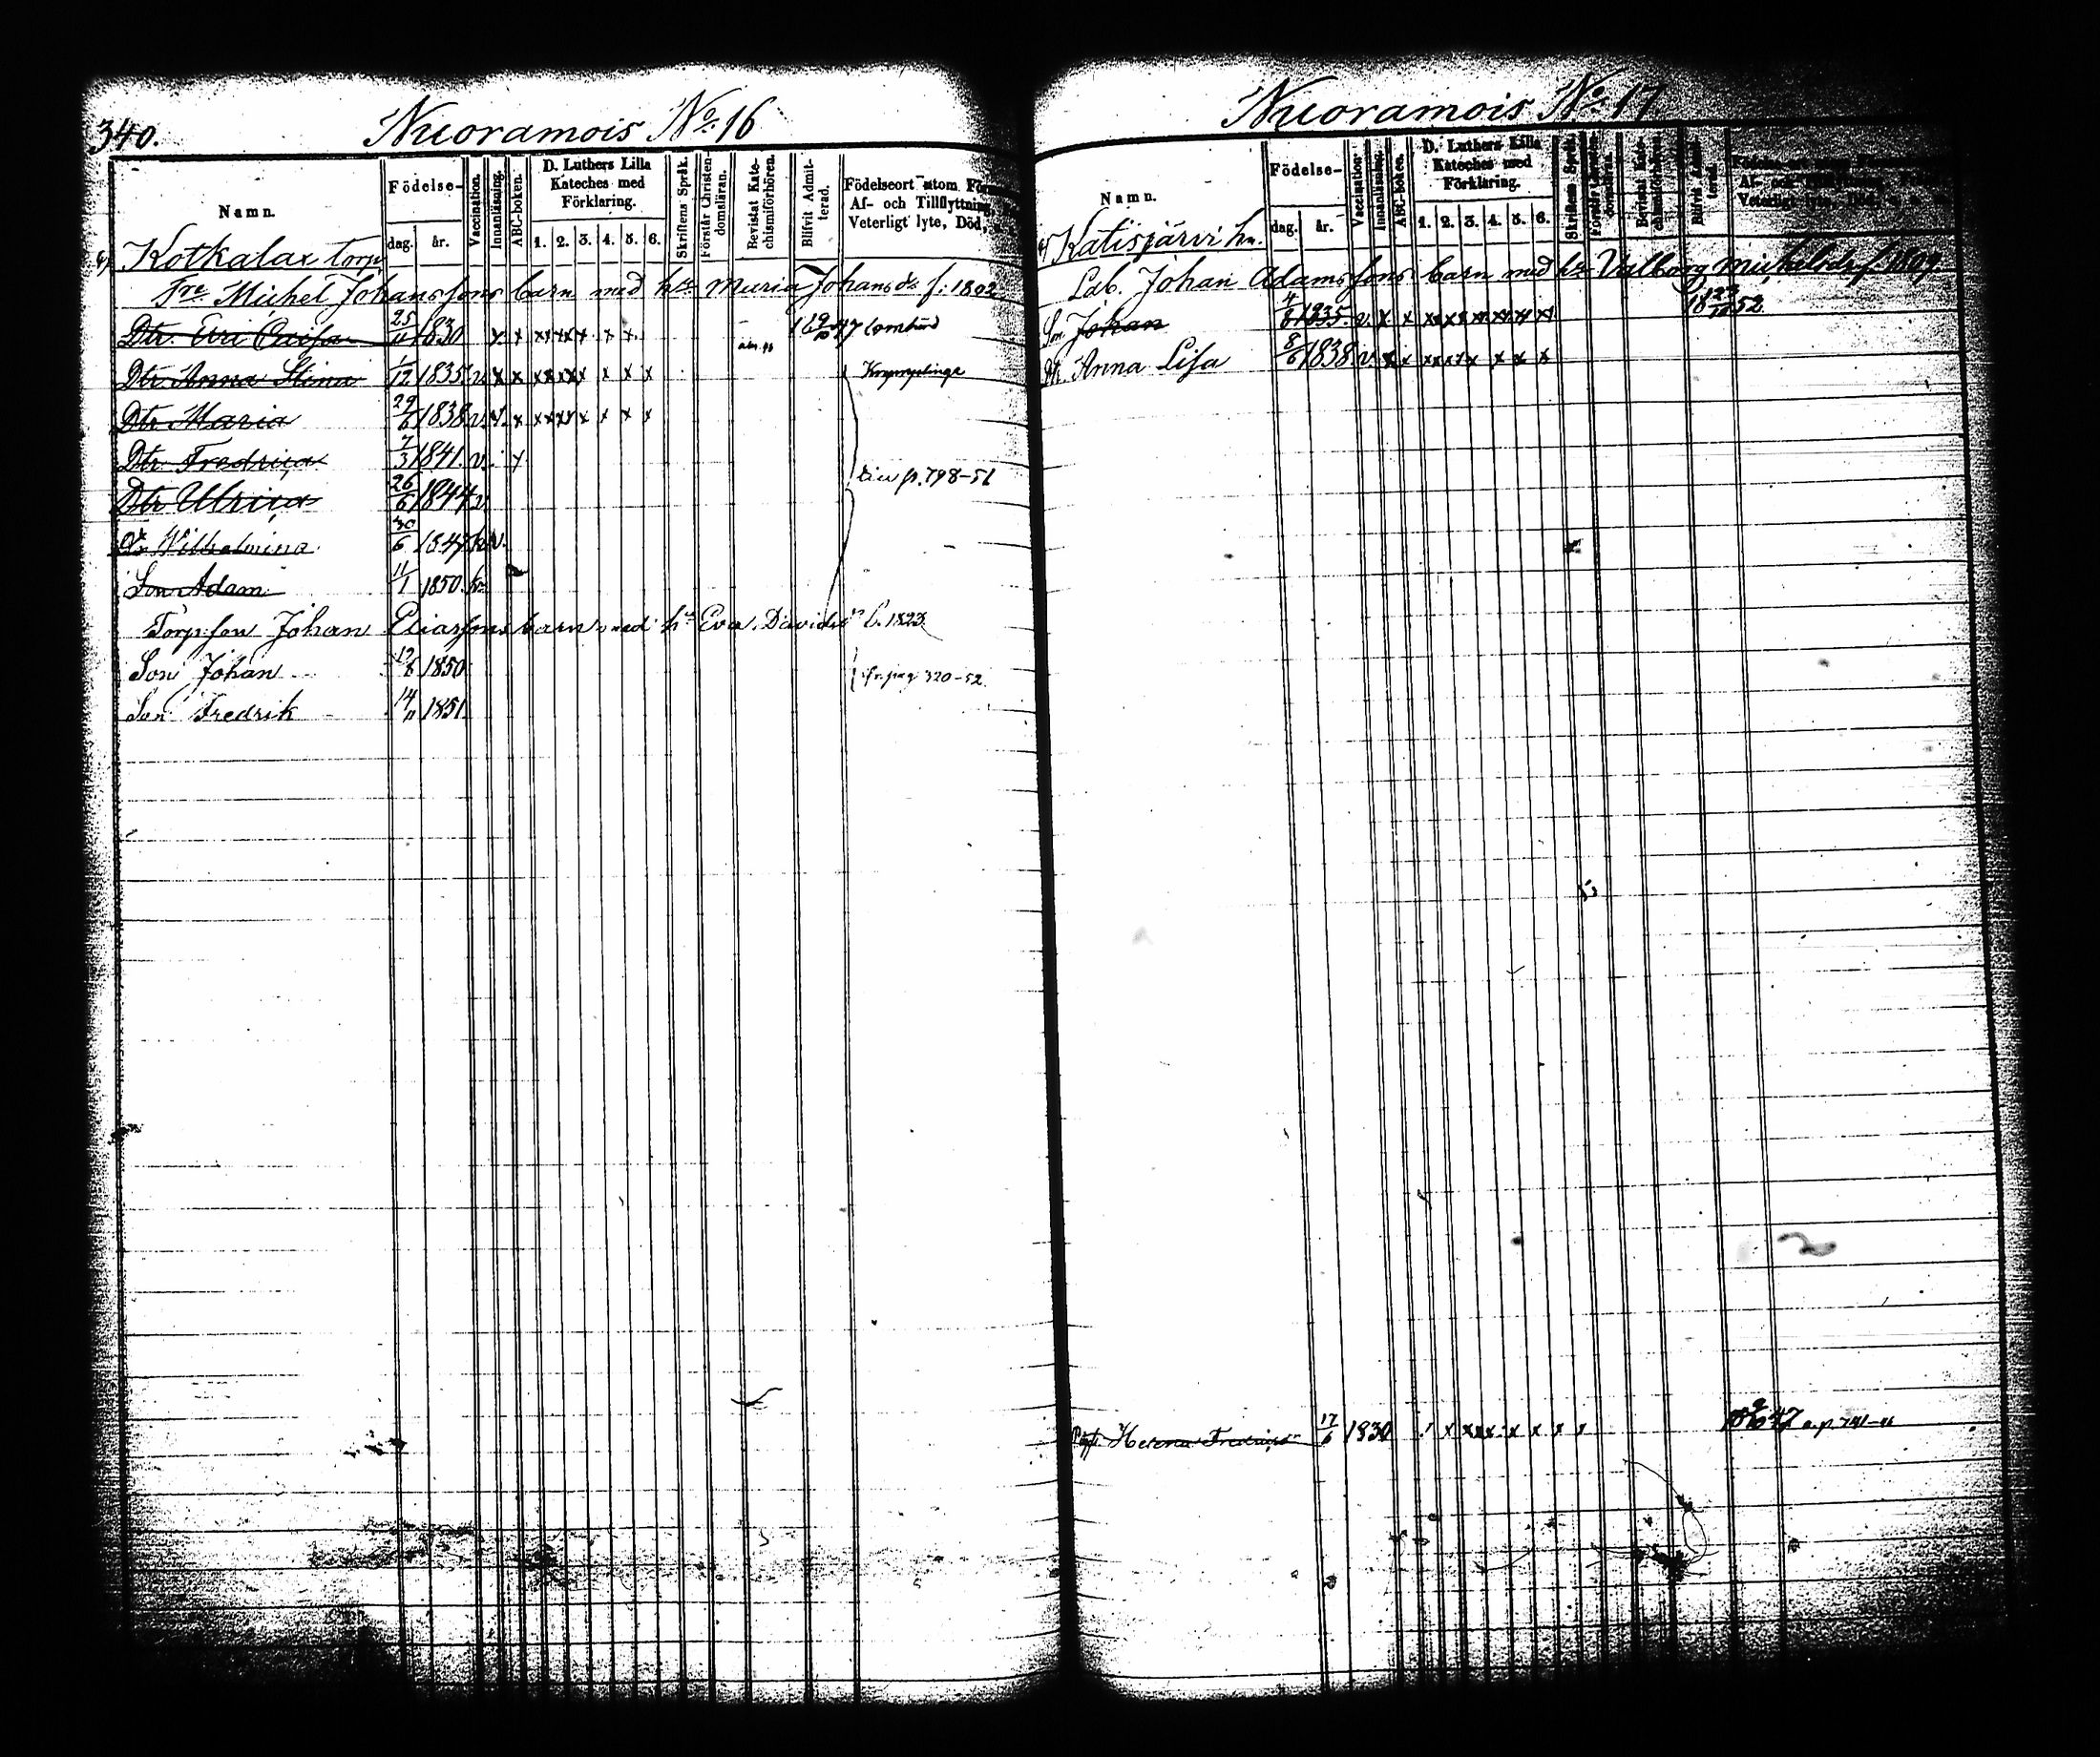 340.
Nuoramois No. 16
Namn.
Födelse-
dag. år.
Vaccination.
Innanläsning.
ABC-boken.
D. Luthers Lilla Kateches med Förklaring.
1. 2. 3. 4. 5. 6.
Skriftens Språk.
Förstår Christendomsläran.
Bevistat Katechismiförhören.
Blifvit Admitterad.
Födelseort utom
Af- och Tillflyttning,
Veterligt lyte, Död,
Kotkalax torp
Michel Johanssons barn med hu Maria Johansdr f: 1802
Dtr. Eva Caisa 25/11 1830 x x x x x x x x x 47
Dtr Anna Stina 1/12 1835 v. x x x x x x x x x
Dtr Maria 29/6 1838 v. x. x x x x x x x x
Dtr. Fredrica 7/3 1841. v. x
Dtr Ulrica 26/6 1844 v
p. 798-51
Dr Wilhelmina 30/6 1847 v.
Son Adam 11/1 1850.
Torp.son Johan Eliassons barn med hu Eva Davidsdr f. 1823
Son Johan 12/8 1850
fr. pag 320-52.
Son Fredrik 14/11 1851.
Nuoramois No. 17
Namn.
Födelse-
dag. år.
Vaccination.
Innanläsning.
ABC-boken.
D. Luthers Lilla Kateches med Förklaring.
1. 2. 3. 4. 5. 6.
Skriftens Språk.
Bevistat Katechismiförhören.
Blifvit Admitterad.
Af- och Tillflyttning
Veterligt lyte, Död,
Katisjärvi
Johan Adamssons barn med hu Valborg Michelsdr f 1809
Son Johan 4/8 1835. v. x x x x x x x x x 52
Dr. Anna Lisa 8/6 1838. v. x x x x x x x x x
Helena 17/6 1830 x x x x x x x 47